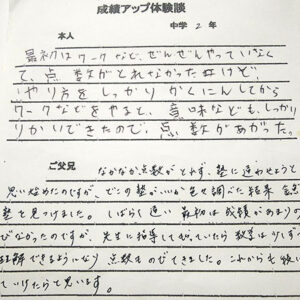 成績アップ体験談
中学 2 年
本人
は ワーク など、ぜんぜんやっていなく
て、点数がとれなかったけど、
やり方をしっかりかくにんしてから
ワークなどをやると、意味などもしっかり
りかいできたので、点数があがった。
ご父兄
なかなか点数がとれず、塾に通わせようと
思い始めたのですが、どこの塾がいいか色々調べた結果
塾を見つけました。しばらく通い 最初は成績があまりの
びなかったのですが、先生に指導してもらっていたら 少しずつ
理解できるようになり 点数ものびてきました。これからも
ていけたらと思います。